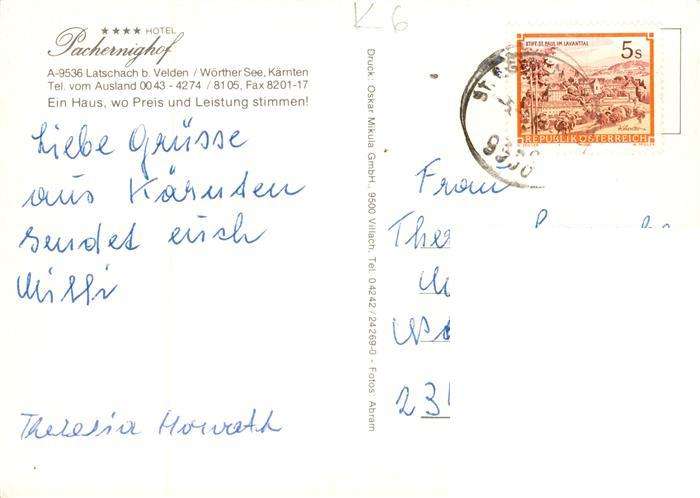 K 6
★★★★ HOTEL
Pachernighof
A-9536 Latschach b. Velden / Wörther See, Kärnten
Tel. vom Ausland 0043 - 4274 / 8105, Fax 8201-17
Ein Haus, wo Preis und Leistung stimmen!
Liebe Grüsse
aus Kärnten
sendet euch
Milli
Theresia Horvath
Druck: Oskar Mikula GmbH., 9500 Villach, Tel. 04242/24269-0 - Fotos: Abram
STIFT ST. PAUL IM LAVANTTAL
5s
REPUBLIK ÖSTERREICH
St.
Frau
The
23